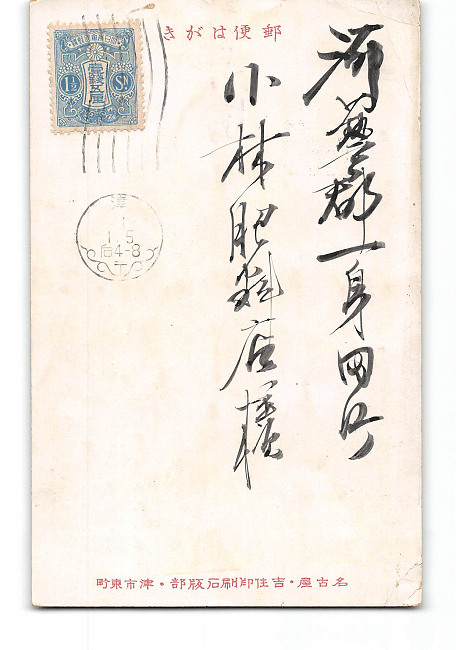 郵便はがき
河芸郡一身田町
小林肥料店様
1½ Sn.
壹錢五厘
津
1.5
后4-8
名古屋・吉住印刷石版部・津市東町